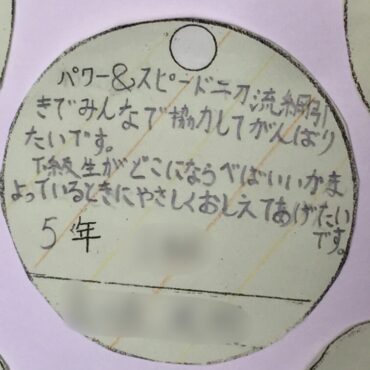 パワー&スピード二刀流綱引
きでみんなで協力してがんばり
たいです。
下級生がどこにならべばいいかま
よっているときにやさしくおしえてあげたい
です。
5年